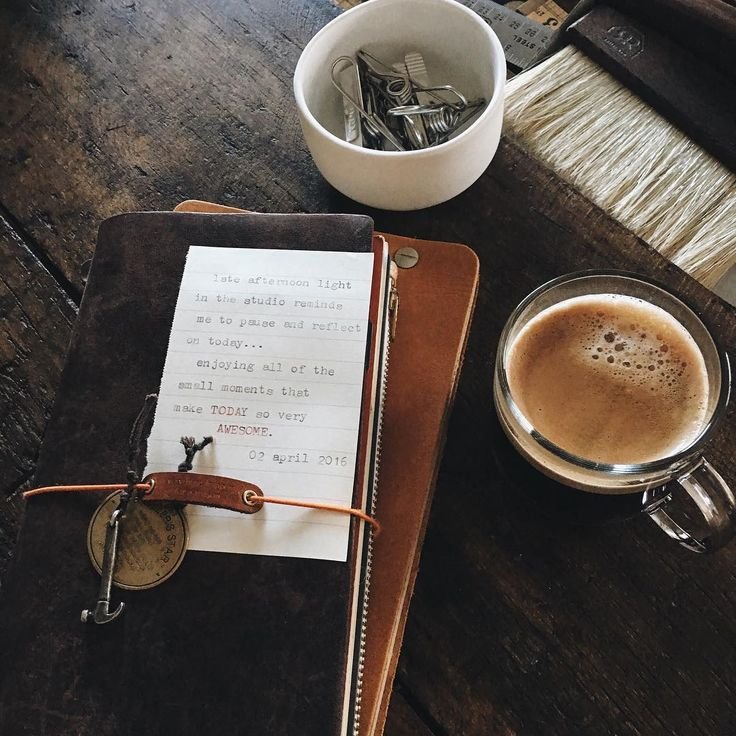 STEEL
late afternoon light
in the studio reminds
me to pause and reflect
on today...
enjoying all of the
small moments that
make TODAY so very
AWESOME.
02 april 2016
STAIR